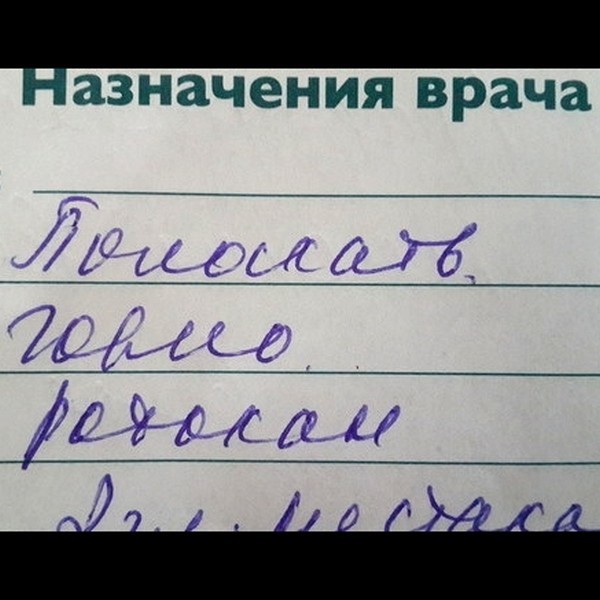 Назначения врача
Полоскать
горло
ротокан